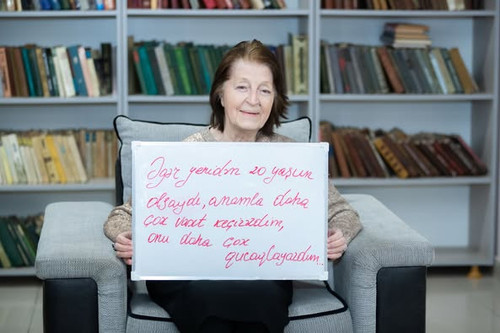 Əgər yenidən 20 yaşım
olsaydı, anamla daha
çox vaxt keçirərdim,
onu daha çox
qucaqlayardım.